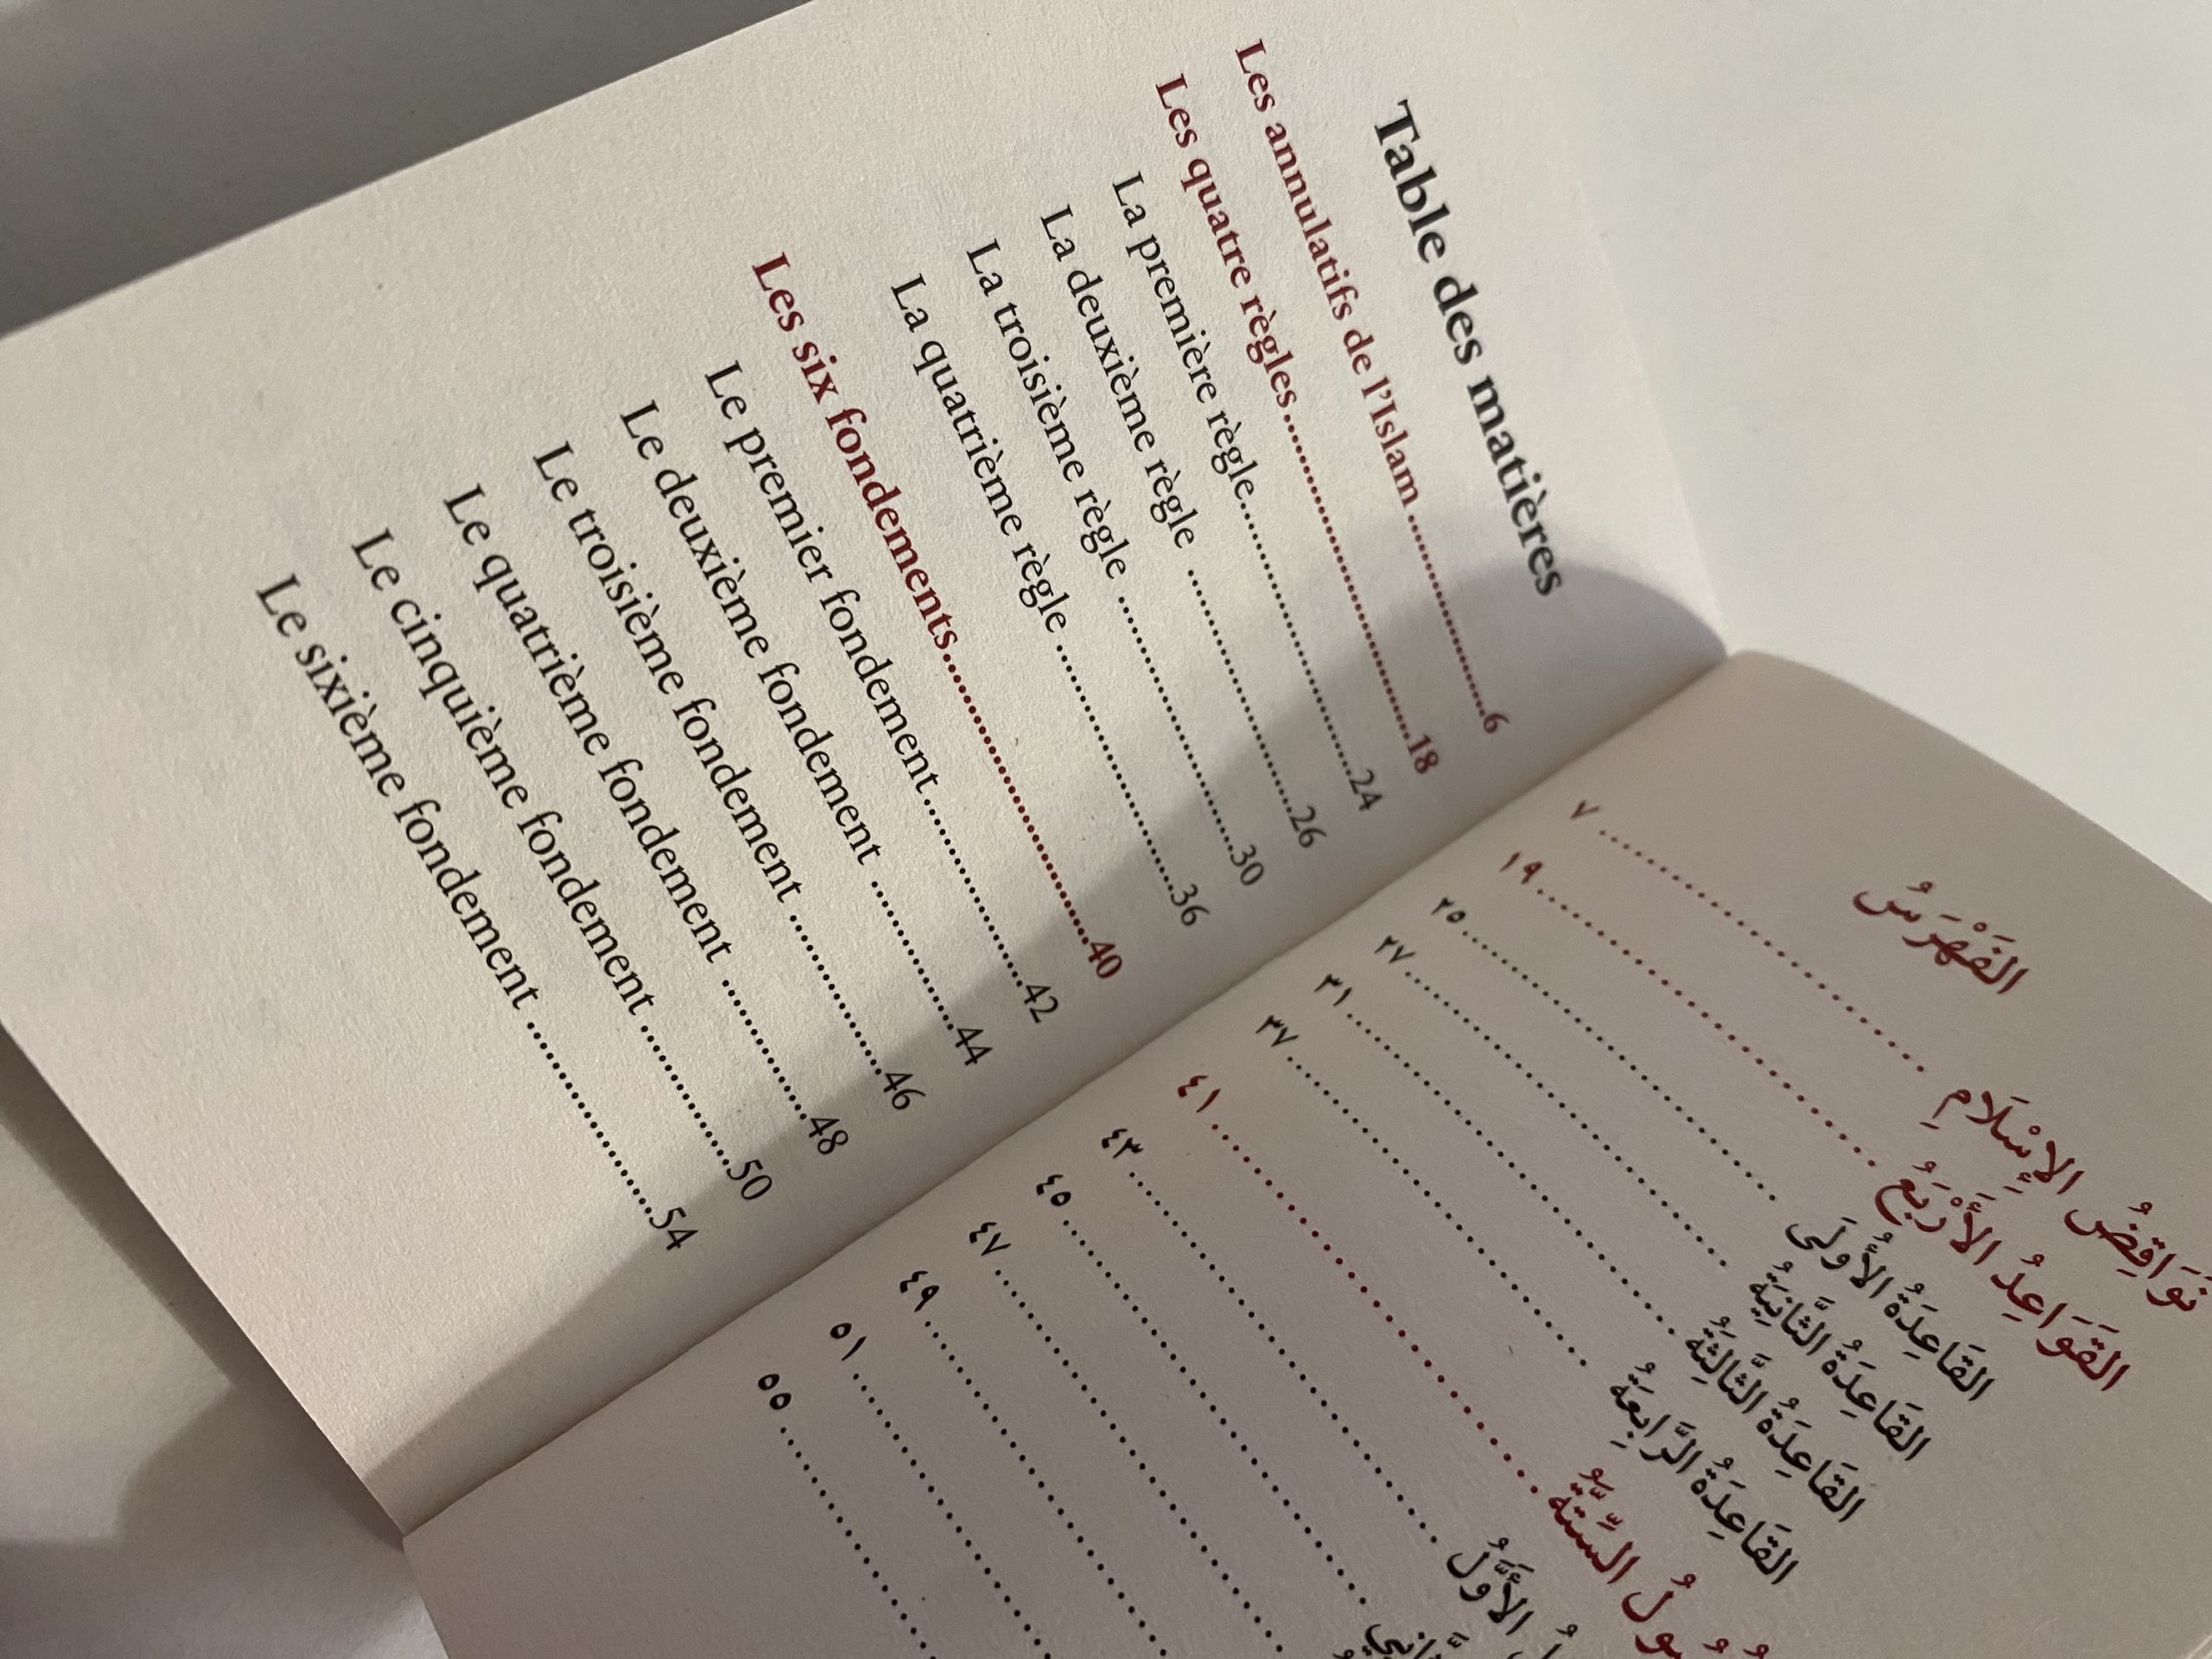 Table des matières
Les annulatifs de l'Islam ..........6
Les quatre règles..........18
La première règle..........24
La deuxième règle ..........26
La troisième règle ..........30
La quatrième règle ..........36
Les six fondements..........40
Le premier fondement..........42
Le deuxième fondement ..........44
Le troisième fondement ..........46
Le quatrième fondement ..........48
Le cinquième fondement ..........50
Le sixième fondement ..........54
الفَهْرَسُ
نَوَاقِضُ الإِسْلَامِ .......... ٧
القَوَاعِدُ الأَرْبَعُ .......... ١٩
القَاعِدَةُ الأُولَى .......... ٢٥
القَاعِدَةُ الثَّانِيَةُ .......... ٢٧
القَاعِدَةُ الثَّالِثَةُ .......... ٣١
القَاعِدَةُ الرَّابِعَةُ .......... ٣٧
السِّتَّةُ .......... ٤١
الأَوَّلُ .......... ٤٣
.......... ٤٥
.......... ٤٧
.......... ٤٩
.......... ٥١
.......... ٥٥